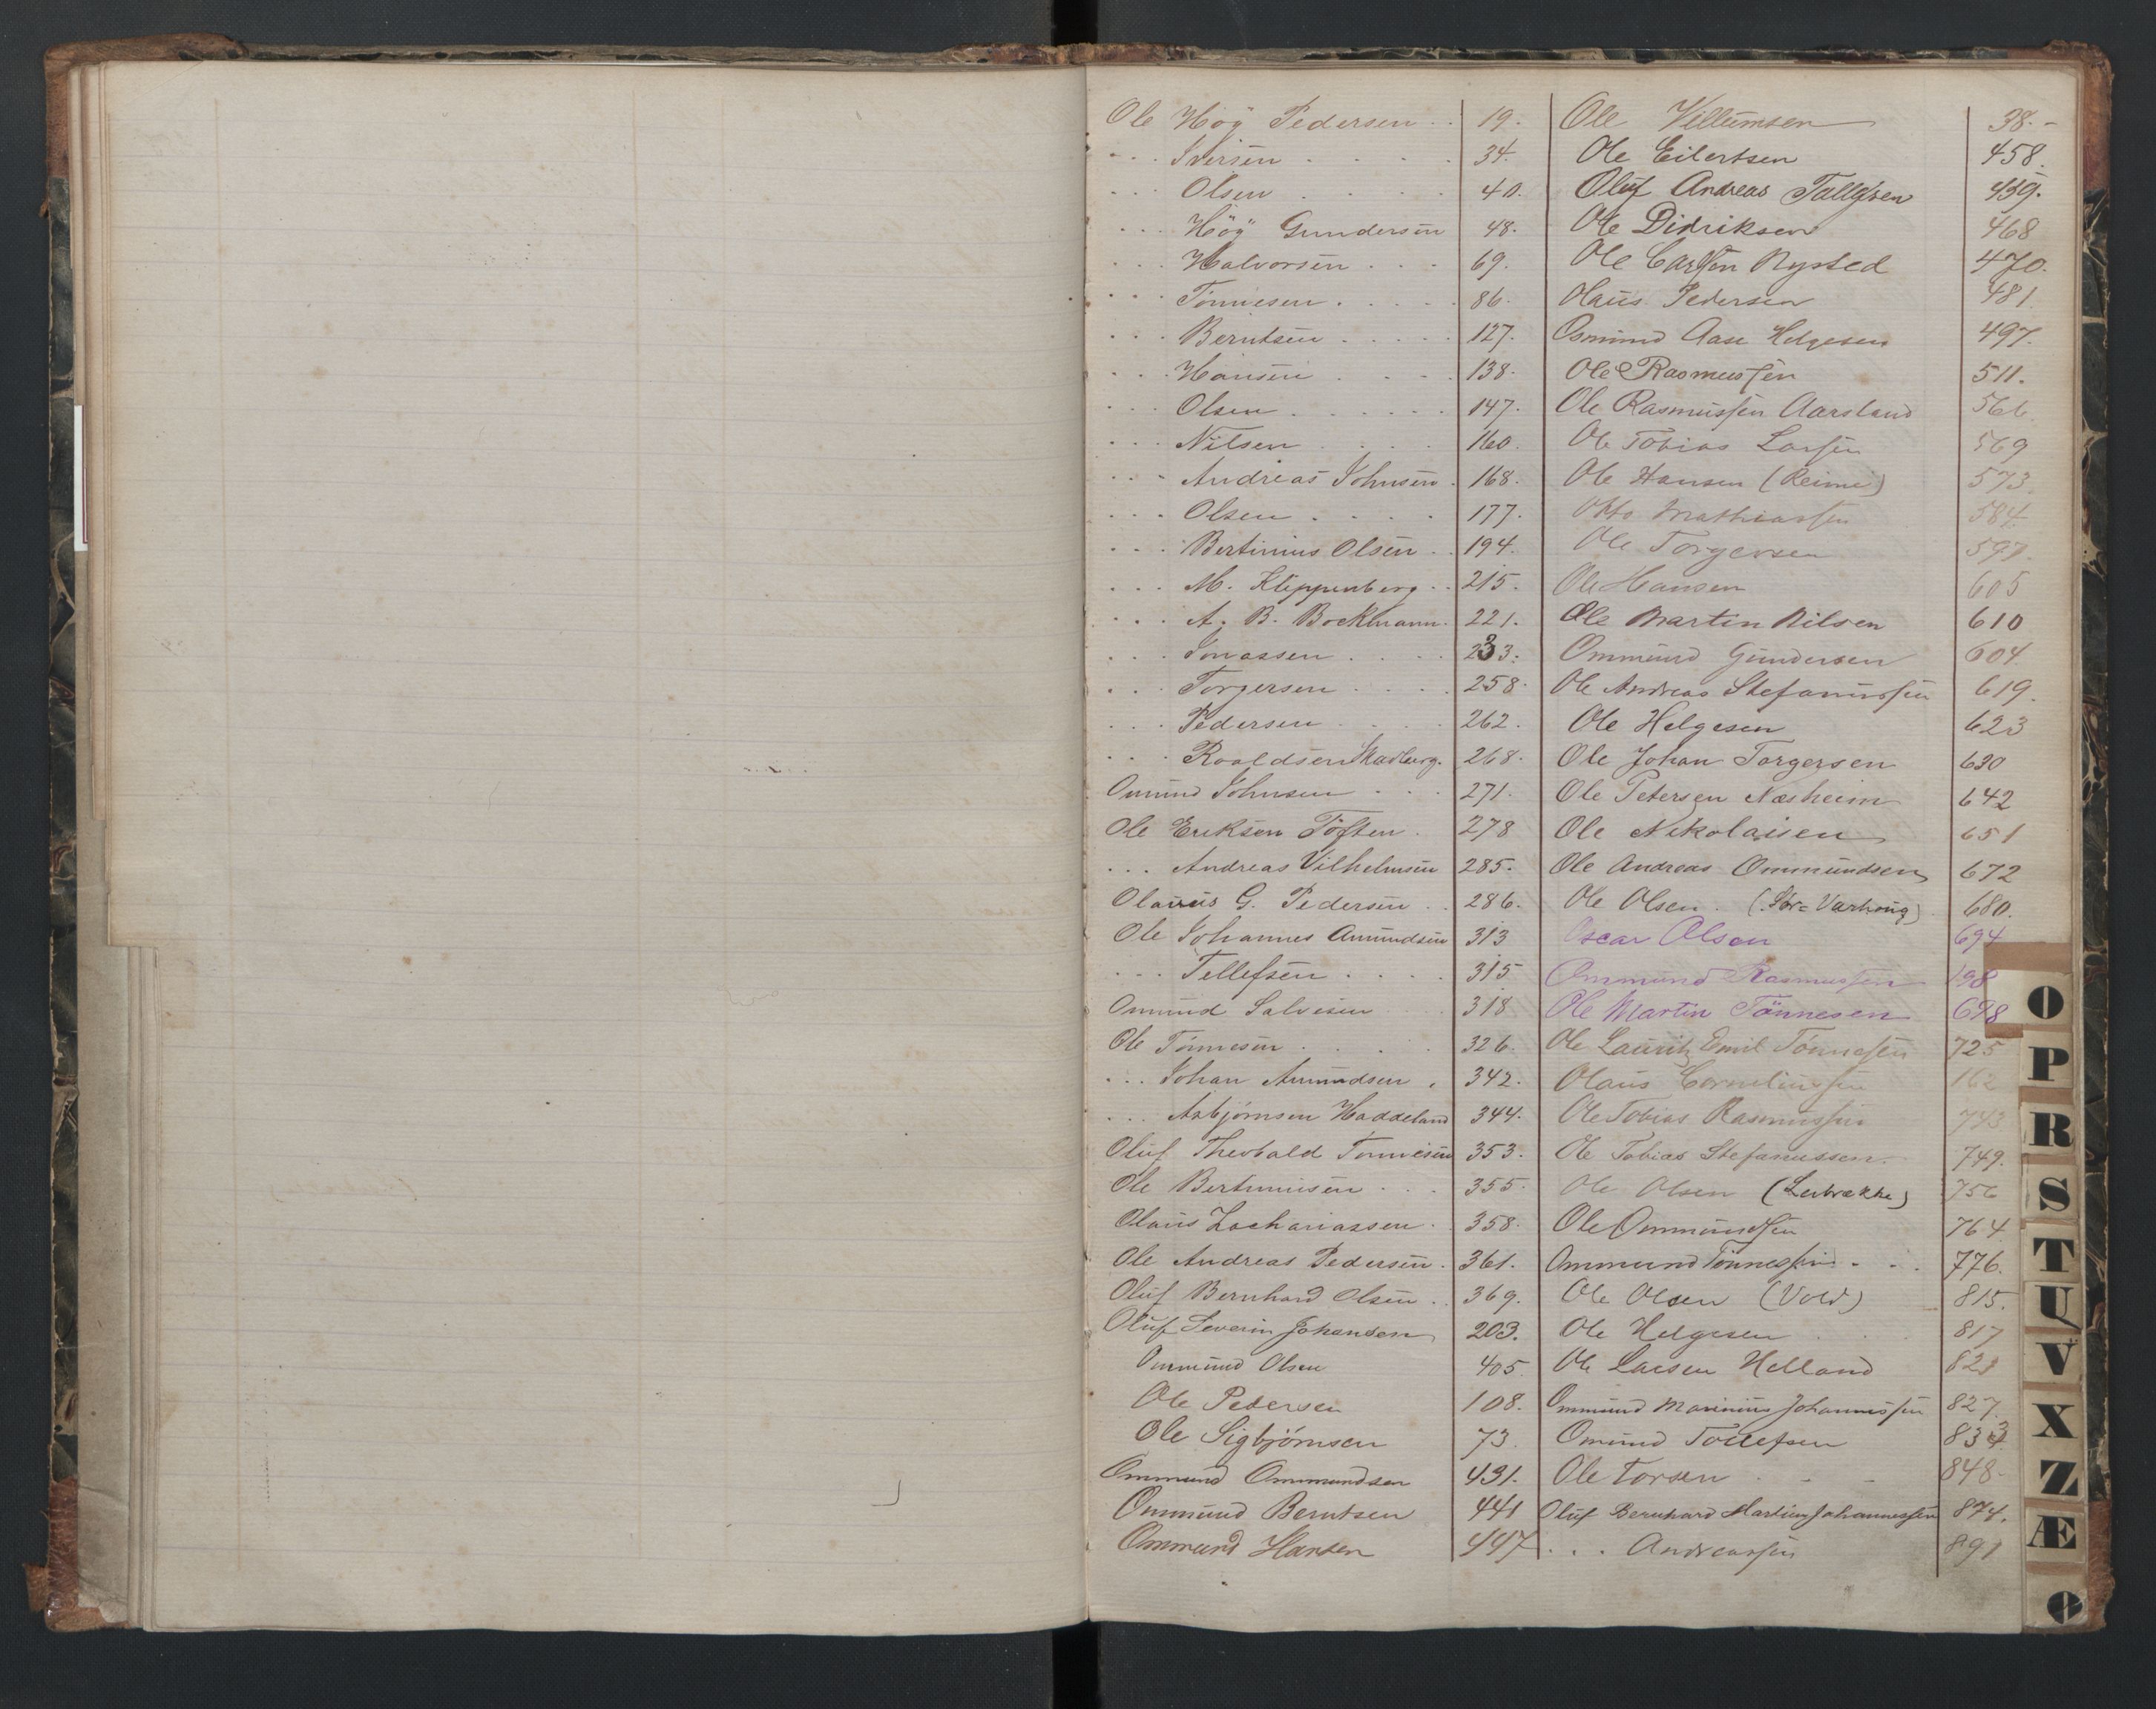 Ole Höÿ Pedersen . . 19.
. . . Iversen . . . . 34.
. . . Olsen . . . . 40.
. . . Höÿ Gundersen 48.
. . . Halvorsen . . . 69.
. . . Tönnesen . . . . 86.
. . . Berntsen . . . . . 127.
. . . Hansen . . . . 138.
. . . Olsen . . . . . . 147.
. . . Nilsen . . . . 160.
. . . Andreas Johnsen . 168.
. . . Olsen . . . . 177.
. . . Bertinius Olsen . . 194.
. . . M. Kleppenberg . . 215.
. . . A. B. Bockmann . 221.
. . . Jonassen . . . . 233.
. . . Torgersen . . . . 258.
. . . Pedersen . . . . 262.
. . . Roaldsen Madberg. 268.
Omund Johnsen . . . 271.
Ole Eriksen Töften . 278
. . . Andreas Vilhelmsen 285.
Olauus G. Pedersen . . 286.
Ole Johannes Amundsen 313
. . . Tellefsen . . . . 315
Omund Salvesen 318
Ole Tönnesen . . . . . 326.
. . . Johan Amundsen . 342.
. . . Asbjörnsen Haddeland 344.
Oluf Theobald Tönnesen 353.
Ole Bertuniusen . . . 355.
Olaus Zachariassen . 358.
Ole Andreas Pedersen . 361.
Oluf Bernhard Olsen . . 369.
Oluf Severin Johansen 203.
Ommund Olsen 405
Ole Pedersen 108.
Ole Sigbjörnsen 73.
Ommund Ommundsen 431.
Ommund Berntsen 441
Ommund Hansen 447
Ole Villumsen 38.-
Ole Eilertsen 458.
Oluf Andreas Tallgren 459.
Ole Didriksen 468
Ole Carlsen Nysted 470.
Olaus Pedersen 481
Osmund Aase Helgesen 497.
Ole Rasmussen 511.
Ole Rasmussen Aarsland 566
Ole Tobias Larsen 569
Ole Hansen (Reime) 573.
Otto Mathiassen 584.
Ole Torgersen 597.
Ole Hansen 605
Ole Martin Nilsen 610
Ommund Gundersen 604.
Ole Andreas Stefanussen 619.
Ole Helgesen 623
Ole Johan Torgersen 630
Ole Petersen Næsheim 642
Ole Nikolaisen 651
Ole Andreas Ommundsen 672
Ole Olsen. (Stor= Varhoug) 680.
Oscar Olsen 694
Ommund Rasmussen 198
Ole Martin Tönnesen 698
Ole Lauritz Emil Tönnesen 725
Olaus Corneliussen 162
Ole Tobias Rasmussen 743
Ole Tobias Stefanussen. 749.
Ole Olsen (Lerbrække) 756
Ole Ommundsen 764
Ommund Tönnessen . . . 776.
Ole Olsen (Vold) 815.
Ole Helgesen . . 817
Ole Larsen Helland 823
Ommund Marinius Johannessen 827.
Omund Tollefsen 833
Ole Torsen . . . 848.
Oluf Bernhard Martin Johannessen 874.
. . . Andreassen 891
O
P
R
S
T
U
V
X
Z
Æ
Ø